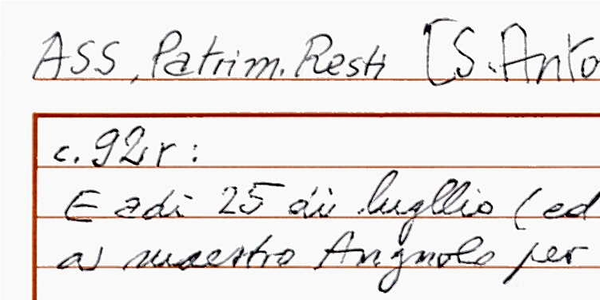 ASS, Patrim. Resti [S. Anto
c. 92r:
E adi 25 di lugllio (ed
a) maestro Angnolo per